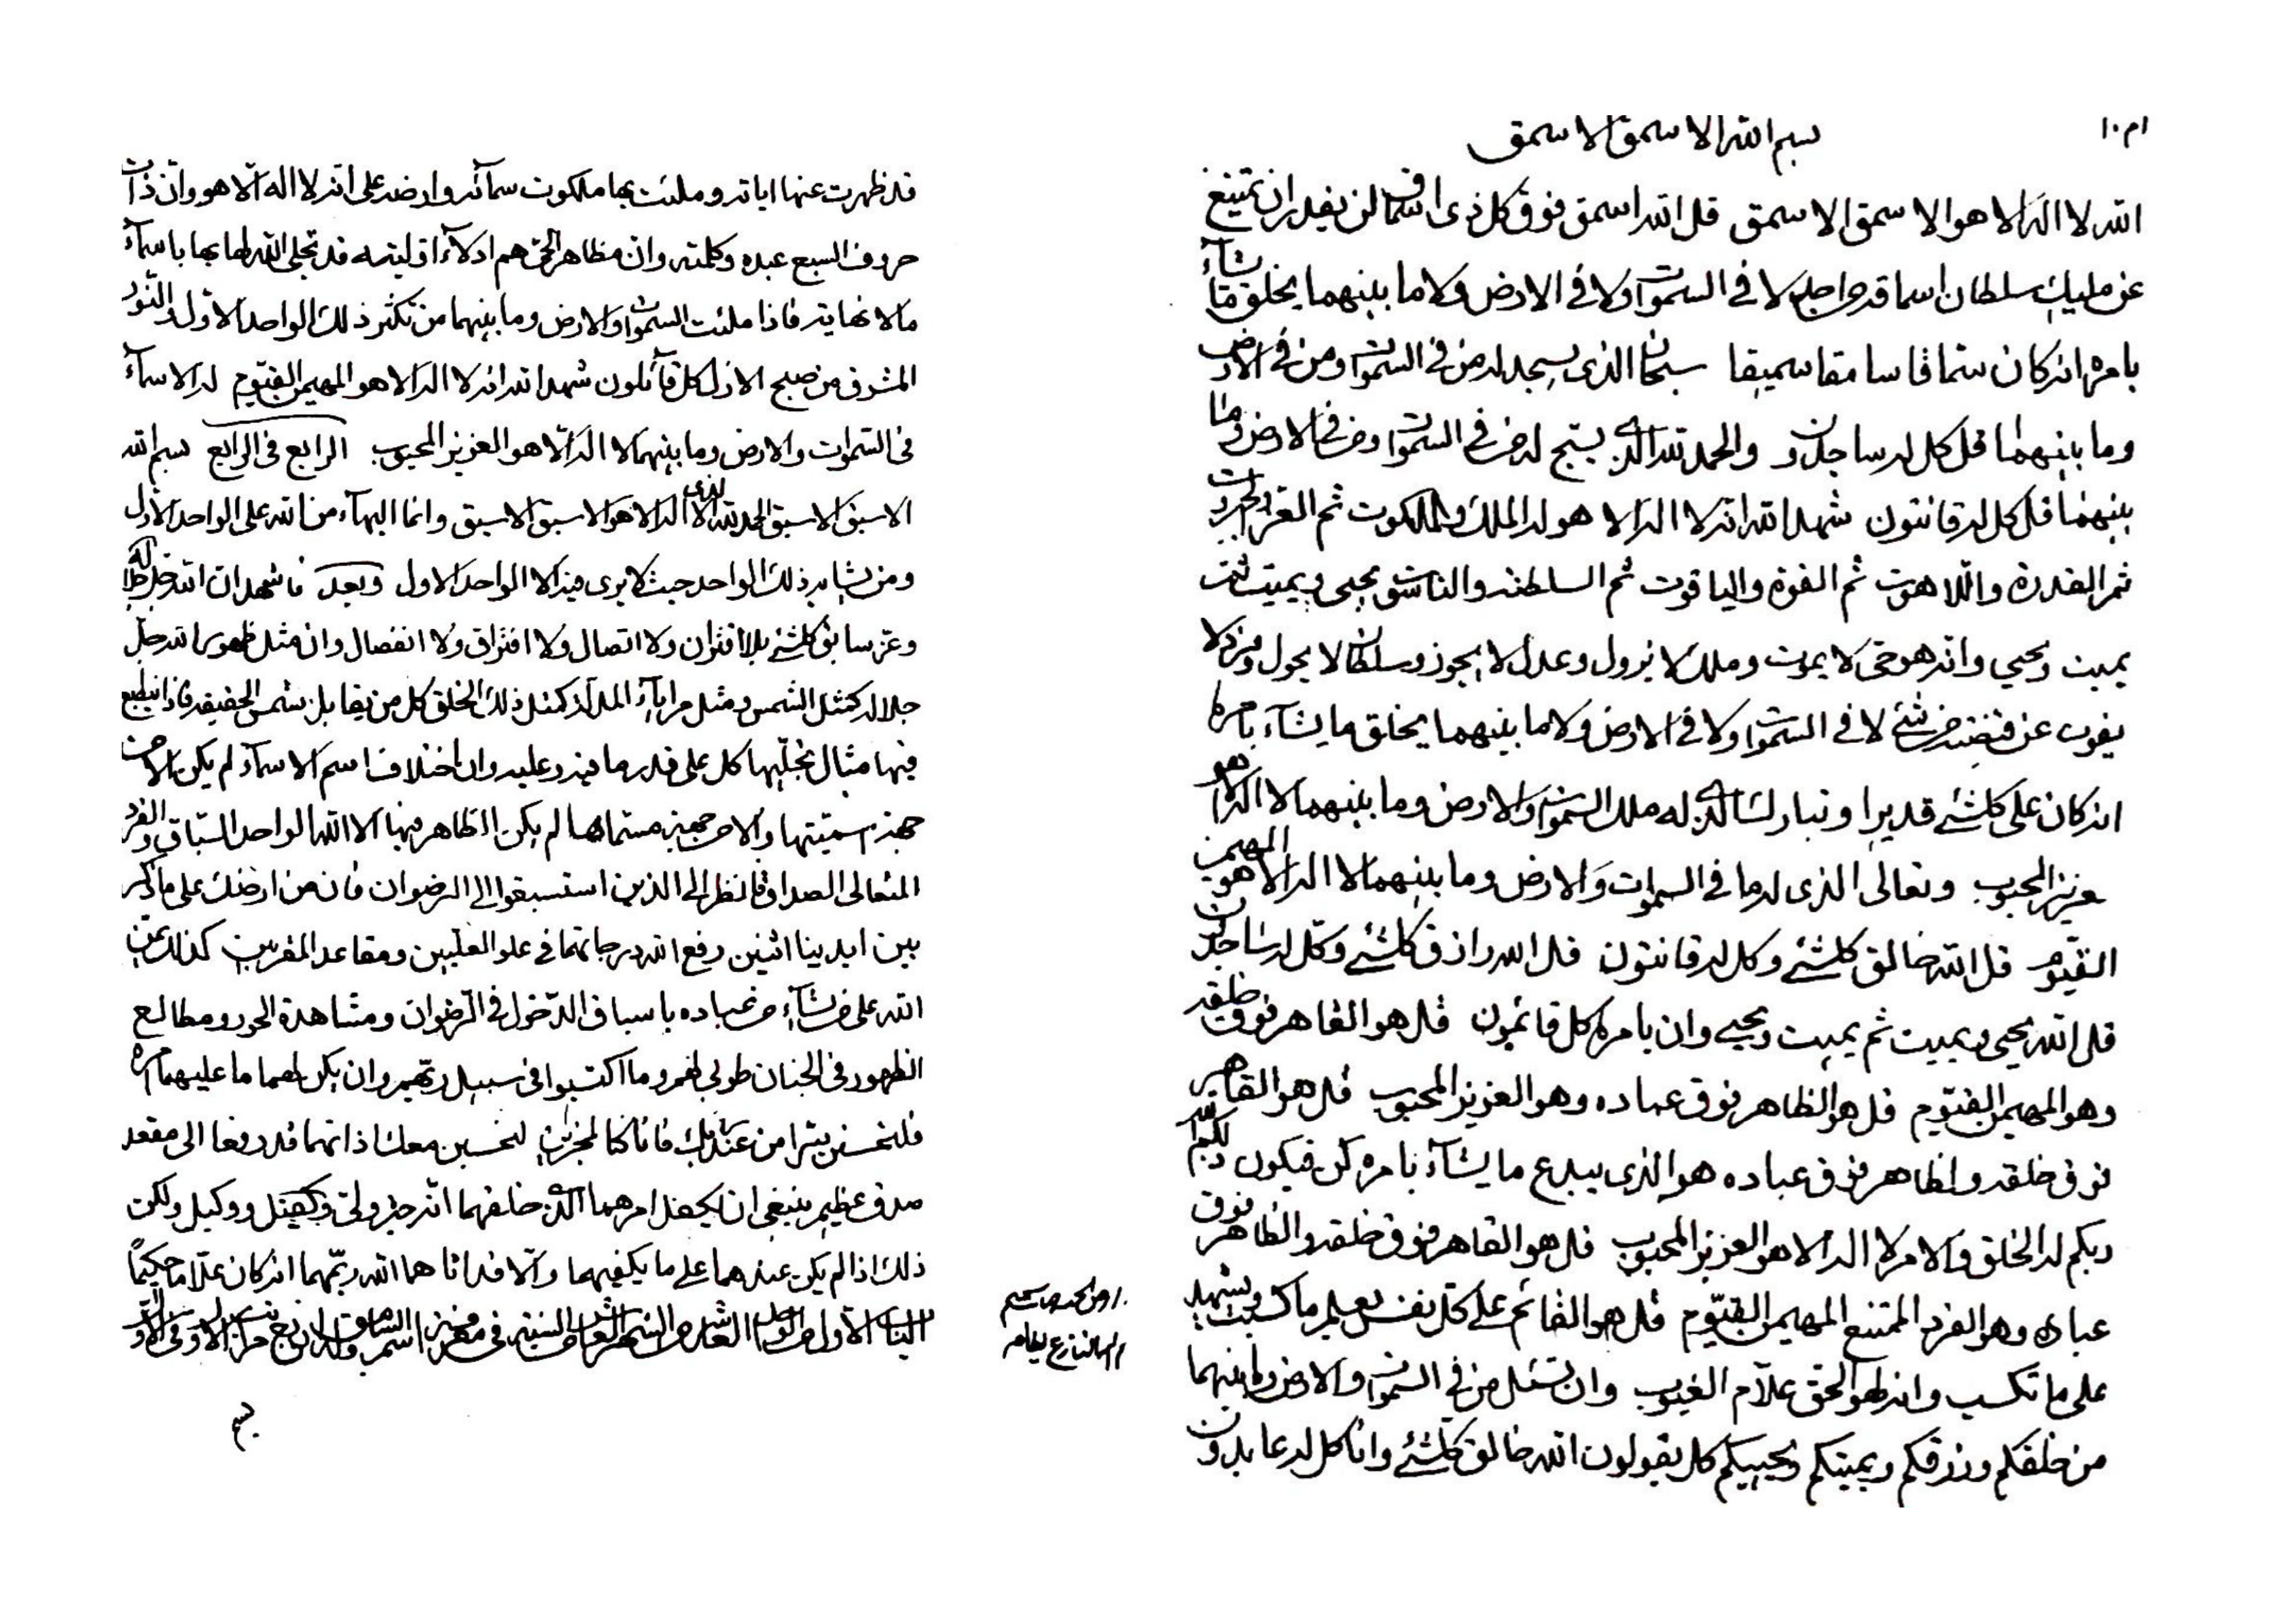 بسم الله الاسمق الاسمق
الله لا اله الا هو الاسمق الاسمق قل الله اسمق فوق كل ذی اسماق لن یقدر ان یمتنع
عن ملیك سلطان اسماقه من احد لا فی السموات ولا فی الارض ولا ما بینهما یخلق ما یشآء
بامره انه كان سماقا سامقا سمیقا سبحان الذی یسجد له من فی السموات ومن فی الارض
وما بینهما قل كل له ساجدون والحمد لله الذی یسبح له من فی السموات ومن فی الارض وما
بینهما قل كل له قانتون شهد الله انه لا اله الا هو له الملك والملكوت ثم العز والجبروت
ثم القدرة واللاهوت ثم القوة والیاقوت ثم السلطنة والناسوت یحیی ویمیت ثم
یمیت ویحیی وانه هو حی لا یموت وملك لا یزول وعدل لا یجوز وسلطان لا یحول وفرد لا
یفوت عن قبضته من شئ لا فی السموات ولا فی الارض ولا ما بینهما یخلق ما یشآء بامره
انه كان علی كلشئ قدیرا وتبارك الذی له ملك السموات والارض وما بینهما لا اله الا هو
عزیز المحبوب وتعالی الذی له ما فی السموات والارض وما بینهما لا اله الا هو المهیمن
القیوم قل الله خالق كلشئ وكل له قانتون قل الله رازق كلشئ وكل له ساجدون
قل الله یحیی ویمیت ثم یمیت ویحیی وان بامره كل قائمون قل هو القاهر فوق خلقه
وهو المهیمن القیوم قل هو الظاهر فوق عباده وهو العزیز المحبوب قل هو القاهر
فوق خلقه والظاهر فوق عباده هو الذی یبدع ما یشآء بامره كن فیكون ذلكم الله
ربكم له الخلق والامر لا اله الا هو العزیز المحبوب قل هو القاهر فوق خلقه والظاهر فوق
عباده وهو الفرد الممتنع المهیمن القیوم قل هو القائم علی كل نفس یعلم ما كسبت ویشهد
علی ما تكسب وانه لهو الحق علآم الغیوب وان تسئل من فی السموات والارض وما بینهما
من خلقكم ورزقكم ویمیتكم ویحییكم كل یقولون الله خالق كلشئ وانا كل له عابدون
قد ظهرت عنها ایاته وملئت بها ملكوت سمآئه وارضه علی انه لا اله الا هو وان ذات
حروف السبع عبده وكلمته وان مظاهر الحی هم ادلآء اولیته قد تجلی الله لها بها باسمآء
ما لا نهایة فاذا ملئت السموات والارض وما بینهما من تكثر ذلك الواحد الاول والنور
المشرق من صبح الازل كل قآئلون شهد الله انه لا اله الا هو المهیمن القیوم له الاسمآء
فی السموات والارض وما بینهما لا اله الا هو العزیز المحبوب الرابع فی الرابع بسم الله
الاسبق الاسبق الحمد لله الذی لا اله الا هو الاسبق الاسبق وانما البهآء من الله علی الواحد الاول
ومن یشابه ذلك الواحد حیث لا یری فیه الا الواحد الاول وبعد فاشهد ان الله جل جلاله
وعز سابق كلشئ بلا اقتران ولا اتصال ولا افتراق ولا انفصال وان مثل ظهور الله جل
جلاله كمثل الشمس ومثل مرایآء المدلة كمثل ذلك الخلق كل من یقابل شمس الحقیقة فاذا ینطبع
فیها مثال تجلیها كل علی قدر ما فیه وعلیه وان اختلاف اسم الاسمآء لم یكن الا من
جهة اسمیتها والا من جهة مسماها لم یكن الظاهر فیها الا الله الواحد السباق والفرد
المتعالی الصداق فانظر الی الذین استسبقوا الی الرضوان فان من ارضك علی ما ذكر
بین ایدینا اثنین رفع الله درجاتهما فی علو العلیین ومقاعد المقربین كذلك یمن
الله علی من یشآء من عباده باسباق الدخول فی الرضوان ومشاهدة الحور ومطالع
الظهور فی الجنان طوبی لهم وما اكتسبوا فی سبیل ربهم وان یكن لهما ما علیهما
من عند ربك فانا كنا لمحزنین لتحسبن معك ذاتهما قد رفعا الی مقعد
صدق عظیم ینبغی ان یكفل امرهما الذی خلقهما انه خیر ولی وكفیل ووكیل ولكن
ذلك اذا لم یكن عندهما علی ما یكفیهما والا قد اتاهما الله ربهما انه كان علاما حكیما